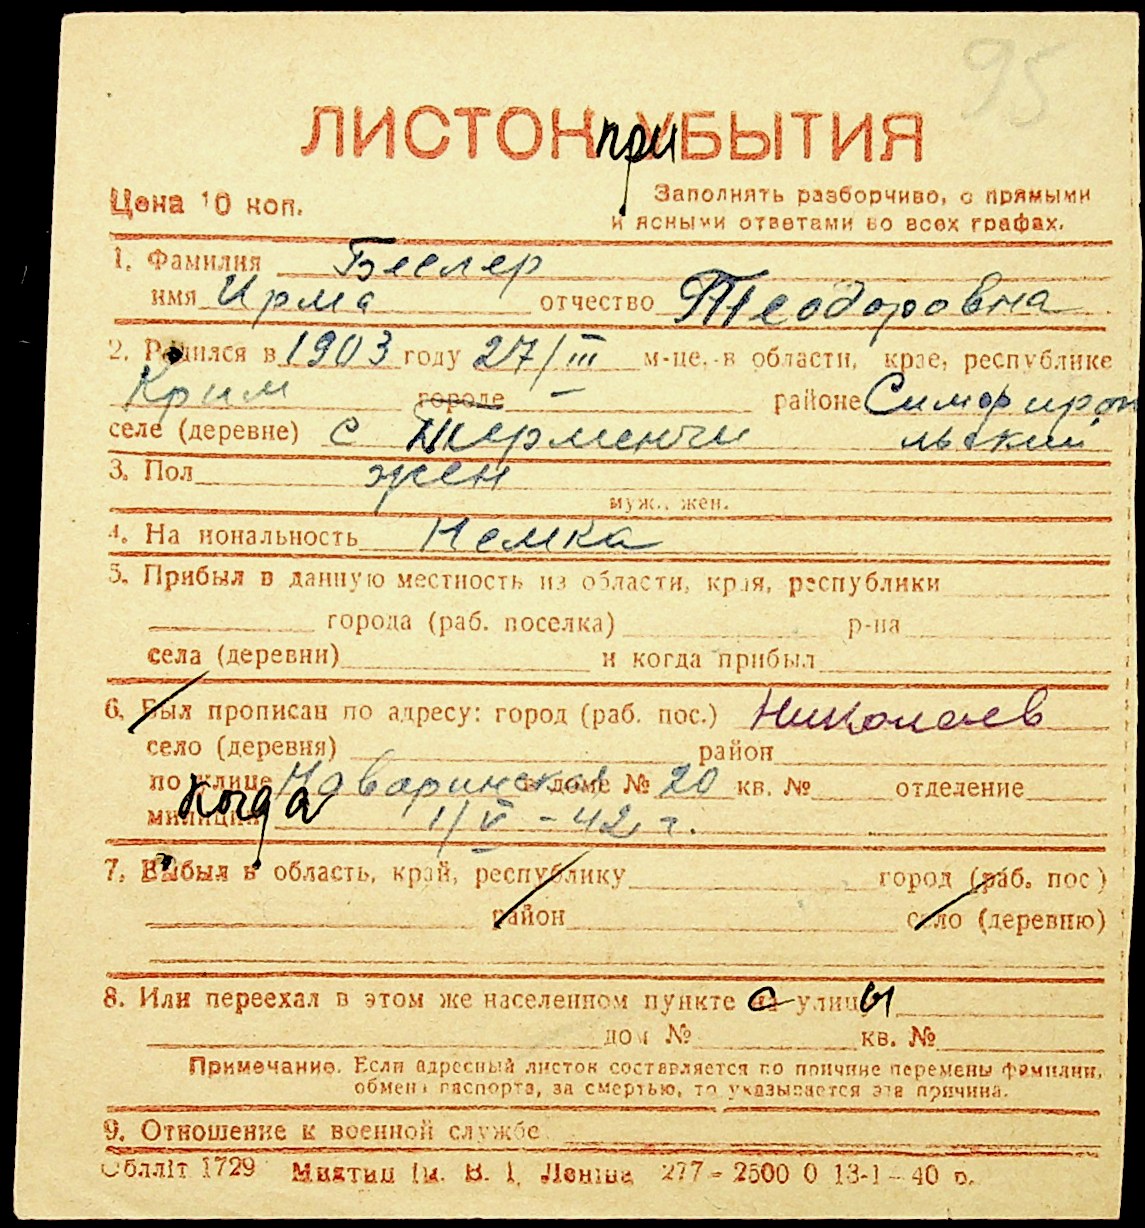 95
ЛИСТОК приУБЫТИЯ
Цена 10 коп.
Заполнять разборчиво, с прямыми
и ясными ответами во всех графах.
1. Фамилия Беслер
имя Ирма отчество Теодоровна
2. Родился в 1903 году 27/III м-це, в области, крае, республике
Крим городе — районе Симфироп
селе (деревне) с Терменчи льский
3. Пол жен
муж., жен.
4. Национальность Немка
5. Прибыл в данную местность из области, края, республики
города (раб. поселка) р-на
села (деревни) и когда прибыл
6. Был прописан по адресу: город (раб. пос.) Николаев
село (деревня) район
по улице Наваринская в доме № 20 кв. № отделение
милиции когда 1/V - 42 г.
7. Выбыл в область, край, республику город (раб. пос)
район село (деревню)
8. Или переехал в этом же населенном пункте с улицы
дом № кв. №
Примечание. Если адресный листок составляется по причине перемены фамилии,
обмена паспорта, за смертью, то указывается эта причина.
9. Отношение к военной службе
Облліт 1729 Миктип ім. В. І. Леніна 277 - 2500 0 13-1 - 40 р.